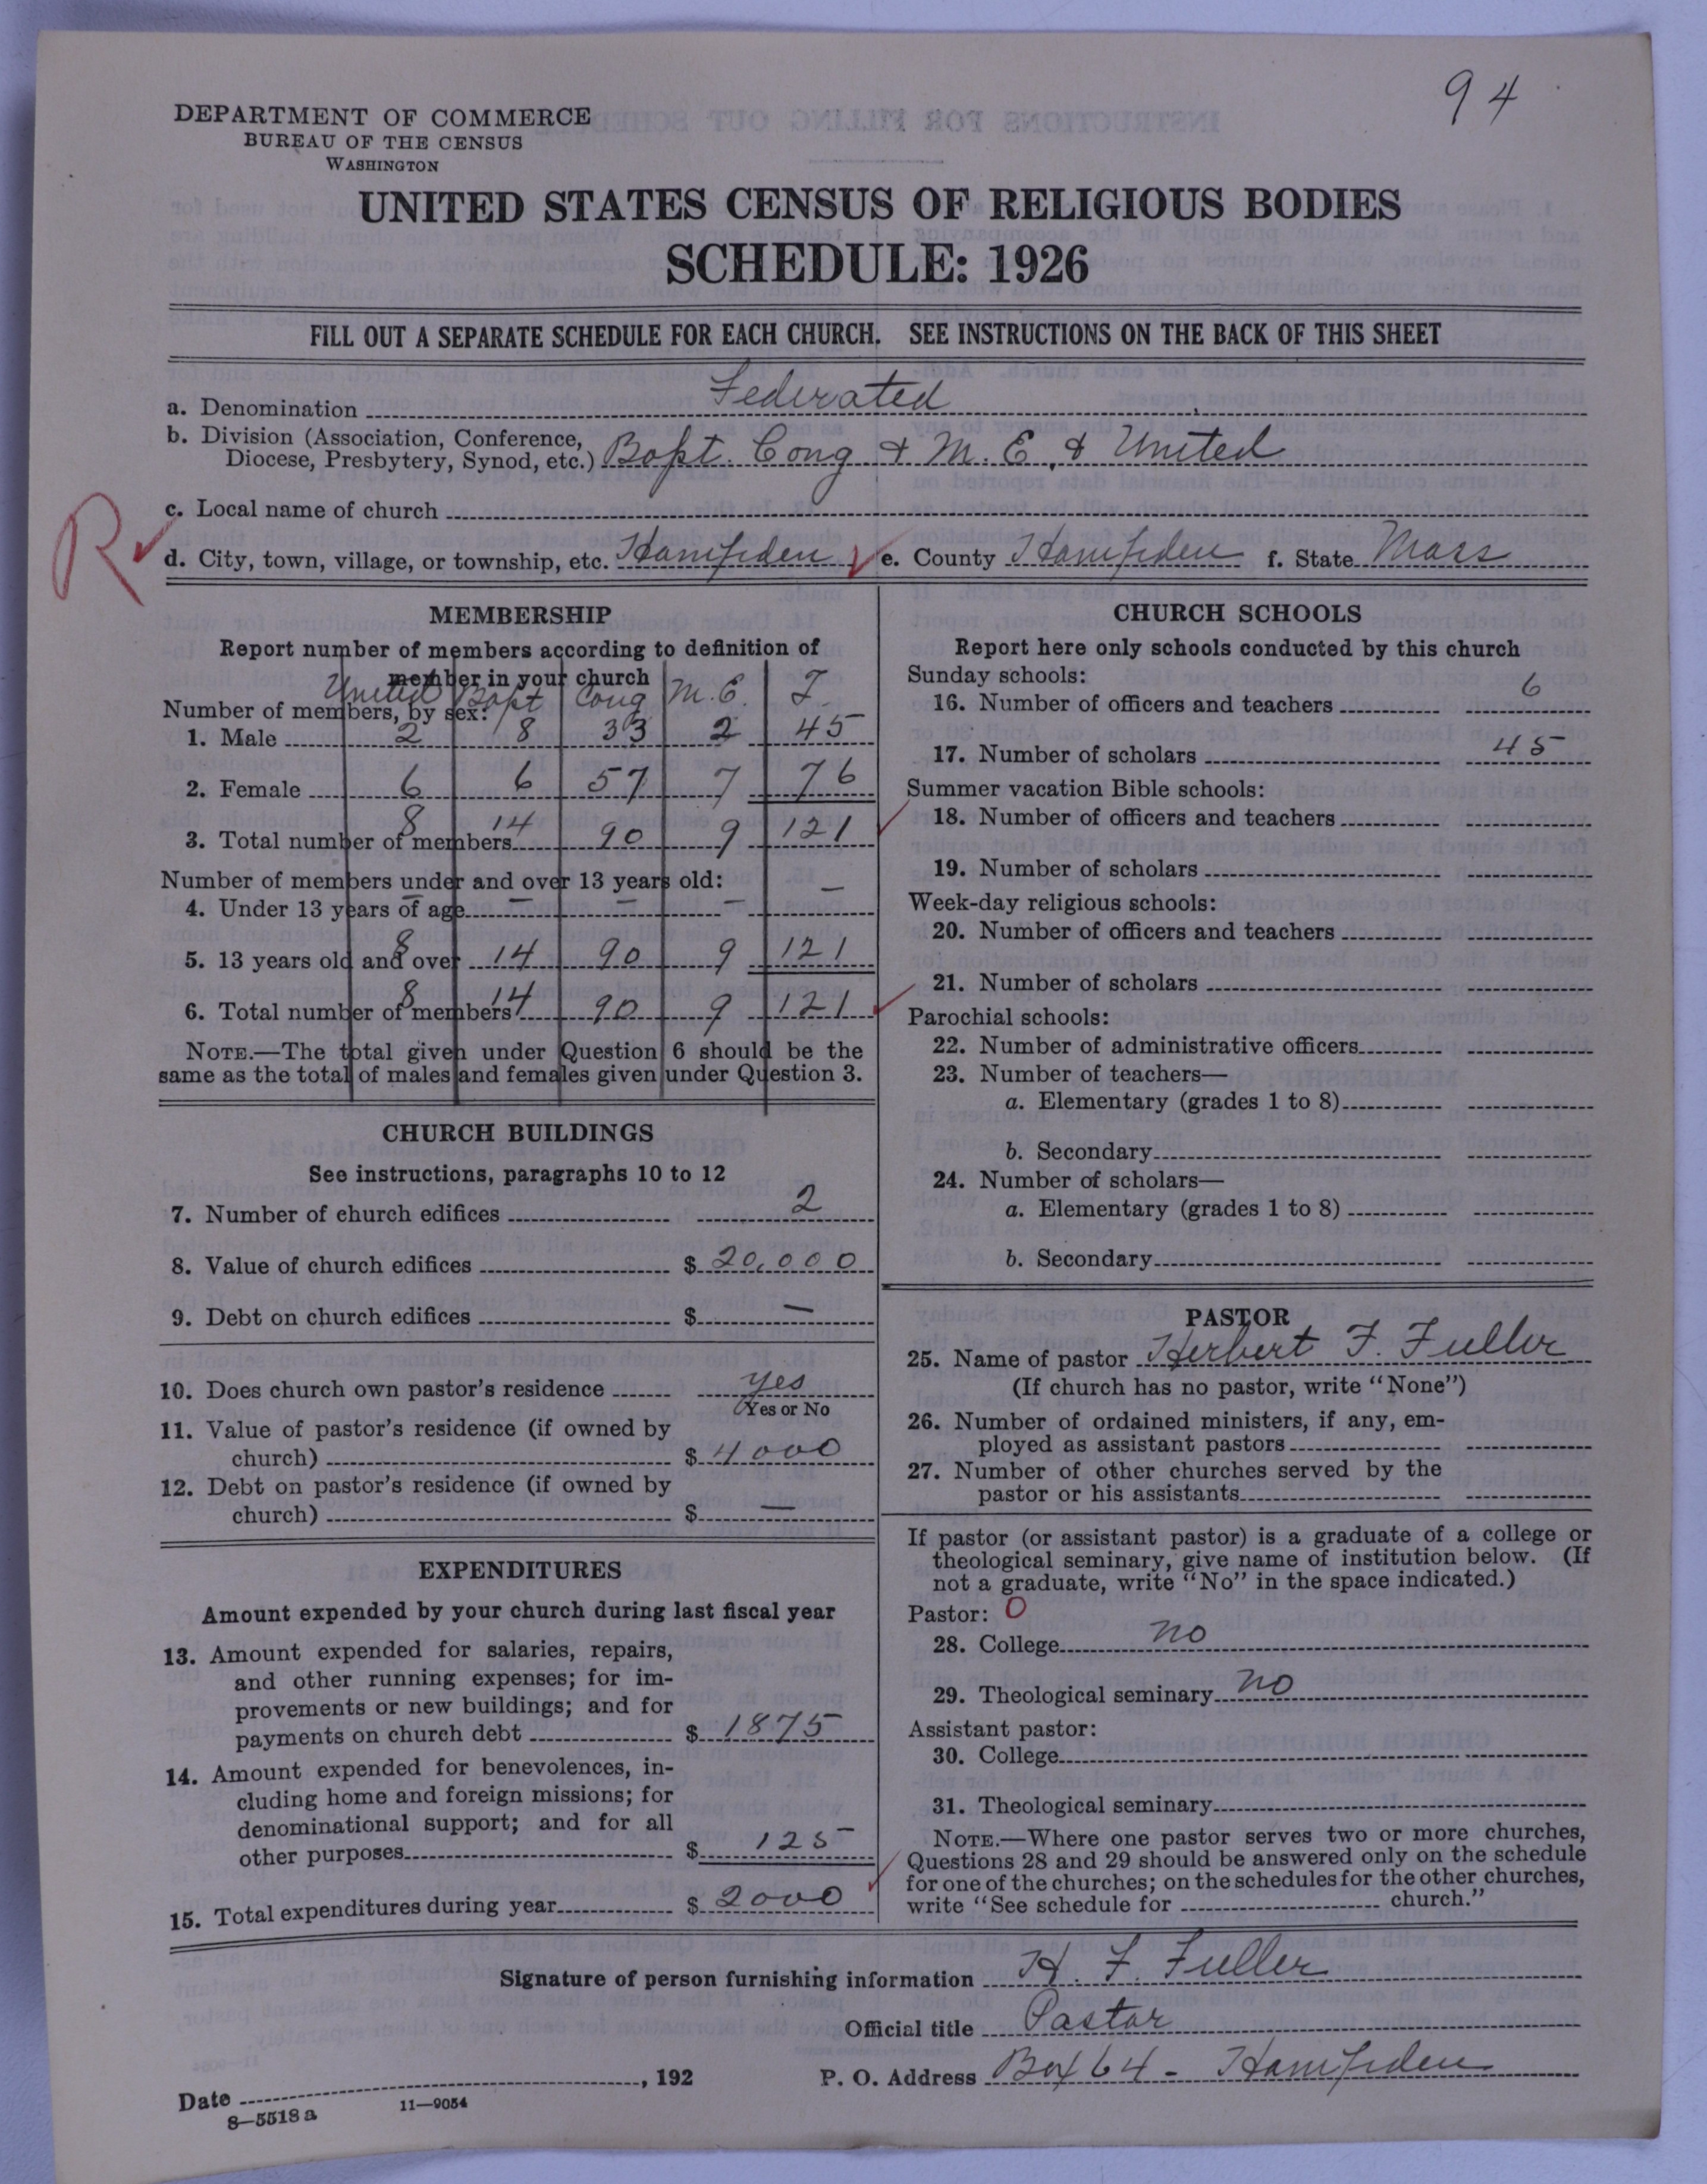 94
DEPARTMENT OF COMMERCE
BUREAU OF THE CENSUS
WASHINGTON
UNITED STATES CENSUS OF RELIGIOUS BODIES
SCHEDULE: 1926
FILL OUT A SEPARATE SCHEDULE FOR EACH CHURCH. SEE INSTRUCTIONS ON THE BACK OF THIS SHEET
a. Denomination Federated
b. Division (Association, Conference,
Diocese, Presbytery, Synod, etc.) Bapt. Cong & M. E. & United
R
c. Local name of church
d. City, town, village, or township, etc. Hampden e. County Hampden f. State Mass
MEMBERSHIP
Report number of members according to definition of
member in your church
United Bapt Cong M. E. T.
Number of members, by sex:
1. Male 2 8 33 2 45
2. Female 6 6 57 7 76
3. Total number of members 8 14 90 9 121
Number of members under and over 13 years old:
4. Under 13 years of age – – – – –
5. 13 years old and over 8 14 90 9 121
6. Total number of members 8 14 90 9 121
NOTE.—The total given under Question 6 should be the
same as the total of males and females given under Question 3.
CHURCH BUILDINGS
See instructions, paragraphs 10 to 12
7. Number of church edifices 2
8. Value of church edifices $ 20,000
9. Debt on church edifices $ —
10. Does church own pastor's residence yes
Yes or No
11. Value of pastor's residence (if owned by
church) $ 4000
12. Debt on pastor's residence (if owned by
church) $ —
EXPENDITURES
Amount expended by your church during last fiscal year
13. Amount expended for salaries, repairs,
and other running expenses; for im-
provements or new buildings; and for
payments on church debt $ 1875
14. Amount expended for benevolences, in-
cluding home and foreign missions; for
denominational support; and for all
other purposes $ 125
15. Total expenditures during year $ 2000
CHURCH SCHOOLS
Report here only schools conducted by this church
Sunday schools:
16. Number of officers and teachers 6
17. Number of scholars 45
Summer vacation Bible schools:
18. Number of officers and teachers
19. Number of scholars
Week-day religious schools:
20. Number of officers and teachers
21. Number of scholars
Parochial schools:
22. Number of administrative officers
23. Number of teachers—
a. Elementary (grades 1 to 8)
b. Secondary
24. Number of scholars—
a. Elementary (grades 1 to 8)
b. Secondary
PASTOR
25. Name of pastor Herbert F. Fuller
(If church has no pastor, write "None")
26. Number of ordained ministers, if any, em-
ployed as assistant pastors
27. Number of other churches served by the
pastor or his assistants
If pastor (or assistant pastor) is a graduate of a college or
theological seminary, give name of institution below. (If
not a graduate, write "No" in the space indicated.)
Pastor: 0
28. College no
29. Theological seminary no
Assistant pastor:
30. College
31. Theological seminary
NOTE.—Where one pastor serves two or more churches,
Questions 28 and 29 should be answered only on the schedule
for one of the churches; on the schedules for the other churches,
write "See schedule for church."
Signature of person furnishing information H. F. Fuller
Official title Pastor
Date , 192 P. O. Address Box 64 - Hampden
8—5518a 11—9054